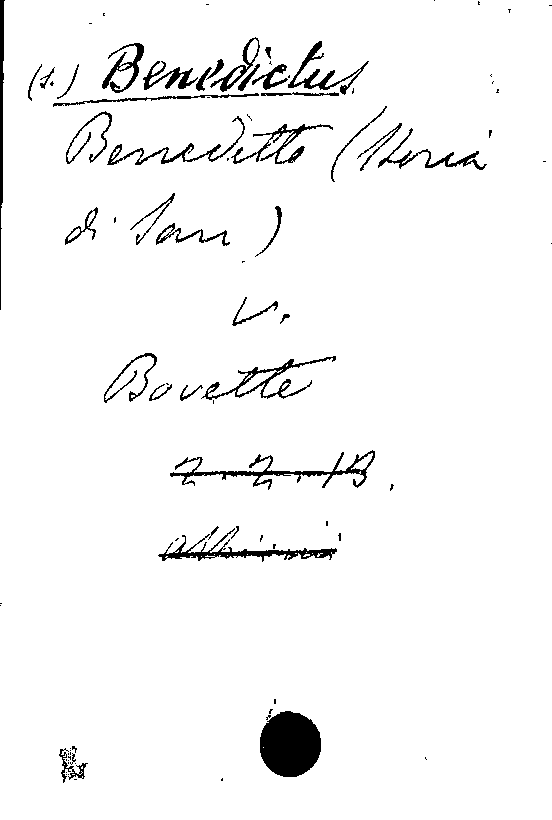 (S.) Benedictus
Benedetto (Storia
di San)
v.
Bovette
2. 2. 13.